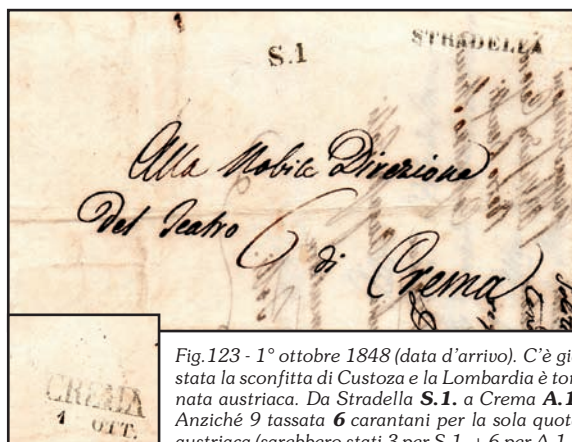 S.1 STRADELLA
Alla Nobile Direzione
Del Teatro 6 di Crema
CREMA
1 OTT.
Fig.123 - 1° ottobre 1848 (data d'arrivo). C'è gi
stata la sconfitta di Custoza e la Lombardia è tor
nata austriaca. Da Stradella S.1. a Crema A.1
Anziché 9 tassata 6 carantani per la sola quot
austriaca (sarebbero stati 3 per S.1. + 6 per A.1